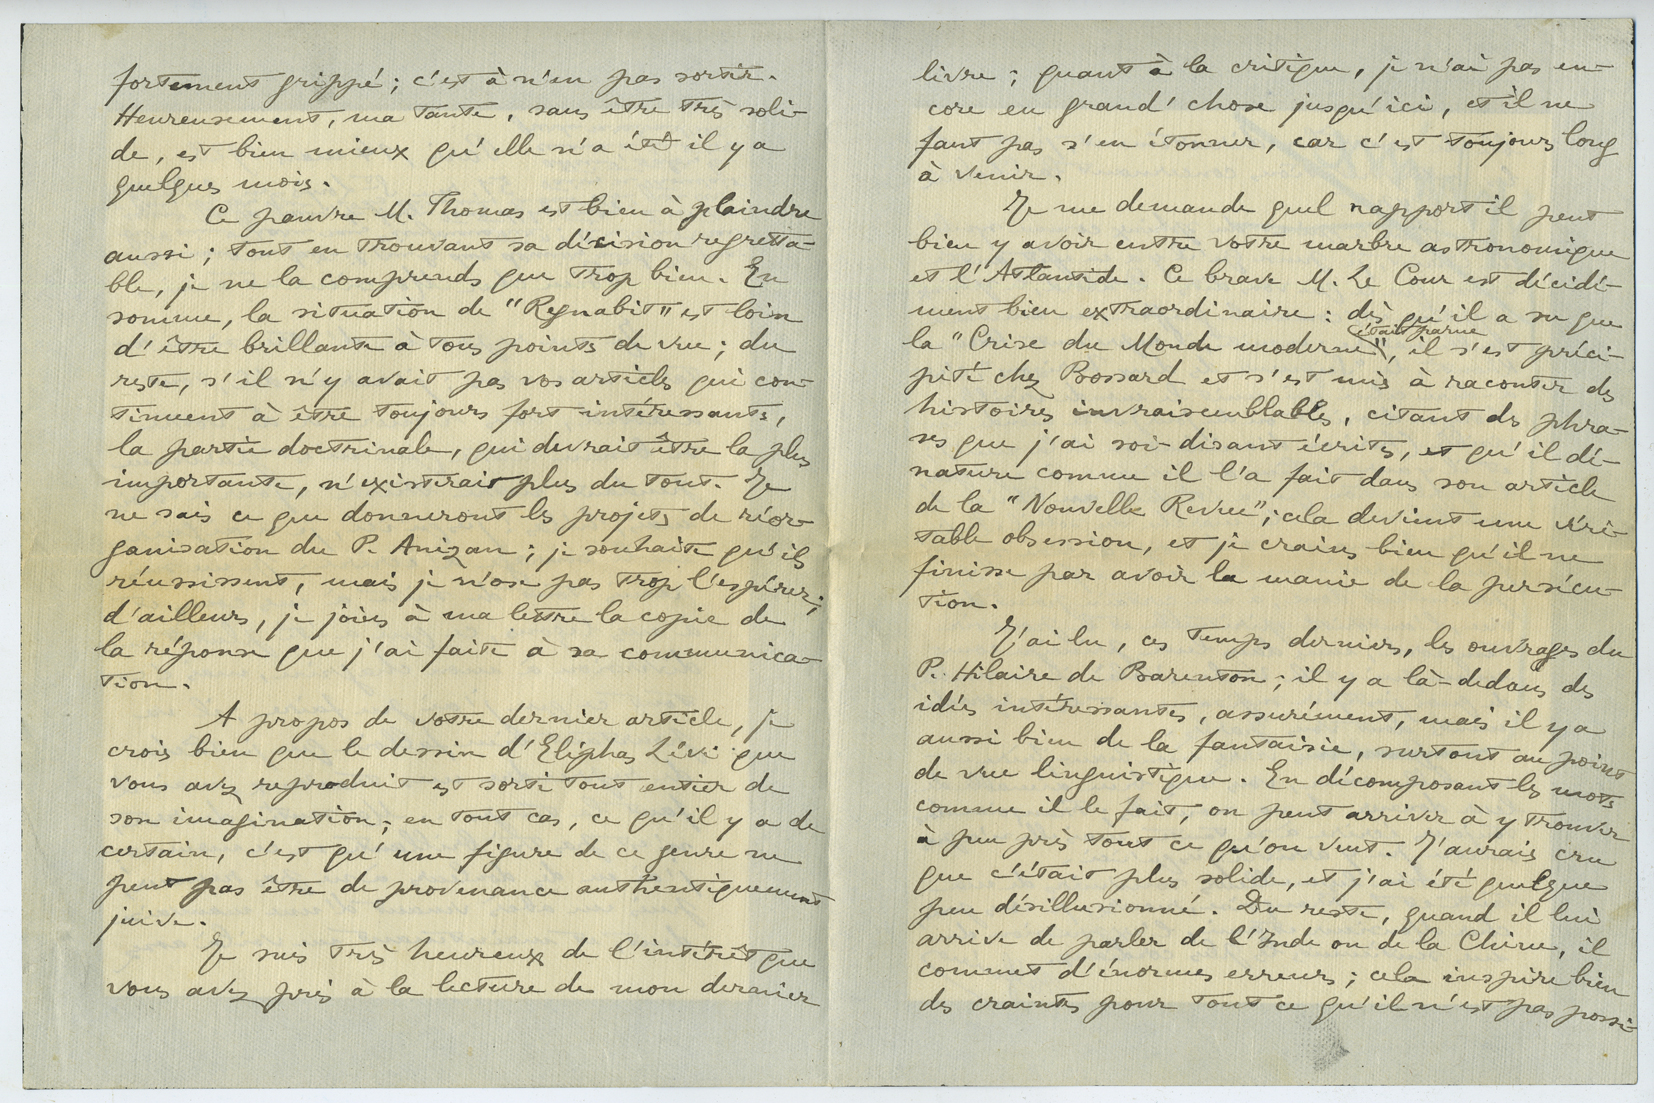 fortement grippé ; c'est à n'en pas sortir.
Heureusement, ma tante, sans être très soli-
de, est bien mieux qu'elle n'a été il y a
quelques mois.
Ce pauvre M. Thomas est bien à plaindre
aussi ; tout en trouvant sa décision regretta-
ble, je ne la comprends que trop bien. En
somme, la situation de "Regnabit" est loin
d'être brillante à tous points de vue ; du
reste, s'il n'y avait pas vos articles qui con-
tinuent à être toujours fort intéressants,
la partie doctrinale, qui devrait être la plus
importante, n'existerait plus du tout. Je
ne sais ce que donneront les projets de réor-
ganisation du P. Anizan ; je souhaite qu'ils
réussissent, mais je n'ose pas trop l'espérer ;
d'ailleurs, je joins à ma lettre la copie de
la réponse que j'ai faite à sa communica-
tion.
A propos de votre dernier article, je
crois bien que le dessin d'Eliphas Lévi que
vous avez reproduit est sorti tout entier de
son imagination ; en tout cas, ce qu'il y a de
certain, c'est qu'une figure de ce genre ne
peut pas être de provenance authentiquement
juive.
Je suis très heureux de l'intérêt que
vous avez pris à la lecture de mon dernier
livre ; quant à la critique, je n'ai pas en-
core eu grand'chose jusqu'ici, et il ne
faut pas s'en étonner, car c'est toujours long
à venir.
Je me demande quel rapport il peut
bien y avoir entre votre marbre astronomique
et l'Atlantide. Ce brave M. Le Cour est décidé-
ment bien extraordinaire : dès qu'il a su que
la "Crise du Monde moderne" était parue, il s'est préci-
pité chez Bossard et s'est mis à raconter des
histoires invraisemblables, citant des phra-
ses que j'ai soi-disant écrites, et qu'il dé-
nature comme il l'a fait dans son article
de la "Nouvelle Revue" ; cela devient une véri-
table obsession, et je crains bien qu'il ne
finisse par avoir la manie de la persécu-
tion.
J'ai lu, ces temps derniers, les ouvrages du
P. Hilaire de Barenton ; il y a là-dedans des
idées intéressantes, assurément, mais il y a
aussi bien de la fantaisie, surtout au point
de vue linguistique. En décomposant les mots
comme il le fait, on peut arriver à y trouver
à peu près tout ce qu'on veut. J'aurais cru
que c'était plus solide, et j'ai été quelque
peu désillusionné. Du reste, quand il lui
arrive de parler de l'Inde ou de la Chine, il
commet d'énormes erreurs ; cela inspire bien
des craintes pour tout ce qu'il n'est pas possi-